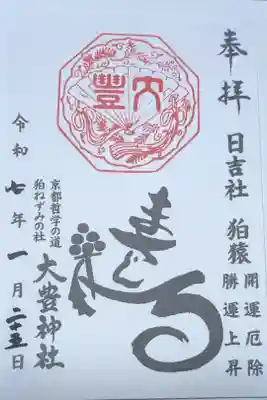 奉拝
日吉社 狛猿
開運厄除
勝運上昇
大豐
まさる
京都哲学の道
狛ねずみの社
大豊神社
令和七年一月二十五日